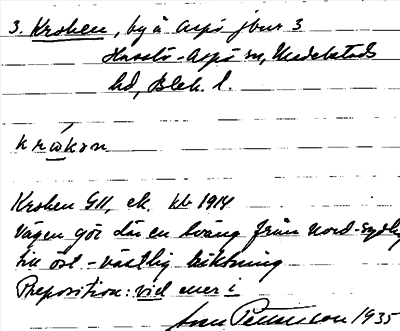 3. Kroken, by å Aspö jbnr 3
Hasslö-Aspö sn, Medelstads
hd, Blek. l.
krωkon
Kroken GII, ek kb 1914
Vägen gör där en sväng från nord-sydlig
till öst-västlig riktning
Preposition: vid eller i
Pettersson 1935